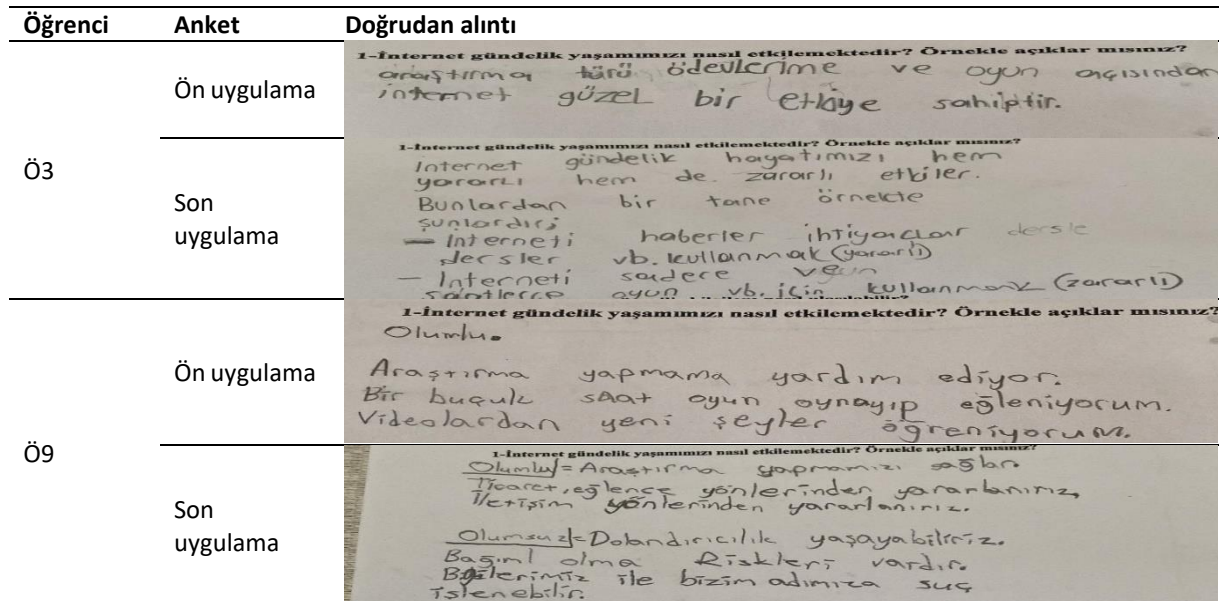 Öğrenci Anket Doğrudan alıntı
Ö3
Ön uygulama
1-İnternet gündelik yaşamımızı nasıl etkilemektedir? Örnekle açıklar mısınız?
araştırma türü ödevlerime ve oyun açısından
internet güzel bir etkiye sahiptir.
Son
uygulama
1-İnternet gündelik yaşamımızı nasıl etkilemektedir? Örnekle açıklar mısınız?
İnternet gündelik hayatımızı hem
yararlı hem de zararlı etkiler.
Bunlardan bir tane örnekte
şunlardır;
— İnterneti haberler ihtiyaçlar dersle
dersler vb. kullanmak (yararlı)
— İnterneti sadece
saatlerce oyun vb. için kullanmak (zararlı)
Ö9
Ön uygulama
1-İnternet gündelik yaşamımızı nasıl etkilemektedir? Örnekle açıklar mısınız?
Olumlu.
Araştırma yapmama yardım ediyor.
Bir buçuk saat oyun oynayıp eğleniyorum.
Videolardan yeni şeyler öğreniyorum.
Son
uygulama
1-İnternet gündelik yaşamımızı nasıl etkilemektedir? Örnekle açıklar mısınız?
Olumlu = Araştırma yapmamızı sağlar.
Ticaret, eğlence yönlerinden yararlanırız,
İletişim yönlerinden yararlanırız.
Olumsuz = Dolandırıcılık yaşayabiliriz.
Bağıml olma Riskleri vardır.
Bilgilerimiz ile bizim adımıza suç
işlenebilir.